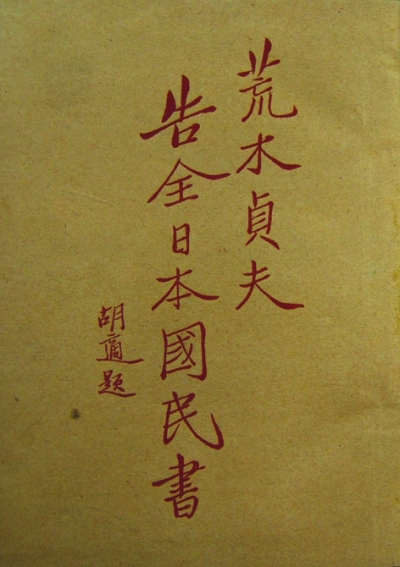 荒木貞夫
告全日本國民書
胡適題